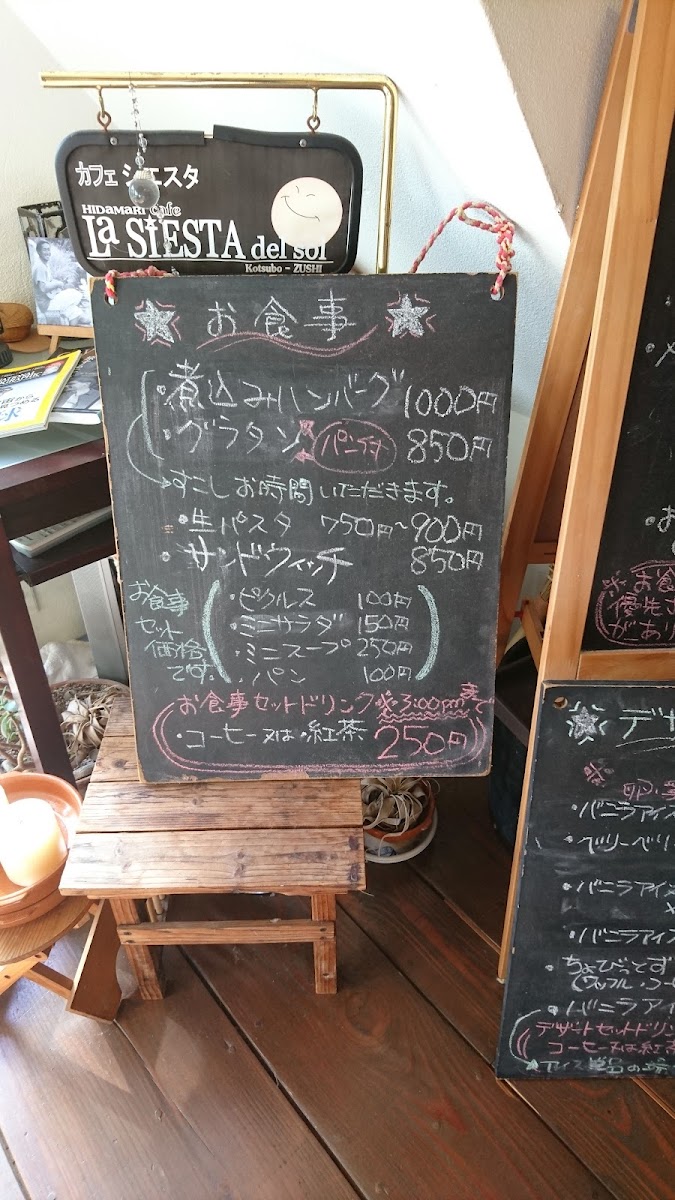 カフェ シエスタ
HIDAMARI cafe
La SiESTA del sol
Kotsubo - ZUSHI
お食事
・煮込みハンバーグ 1000円
・グラタン パン付 850円
すこしお時間いただきます。
・生パスタ 750円~900円
・サンドウィッチ 850円
お食事
セット
価格
です。
・ピクルス 100円
・ミニサラダ 150円
・ミニスープ 250円
・パン 100円
お食事セットドリンク ※3:00pmまで
・コーヒー又は・紅茶 250円
※お食
優先さ
があり
デザ
※
・バニラアイス
・ベリーベリ
・バニラアイス
・バニラアイス
・ちょびっとず
(ワッフル・コー
・バニラアイ
デザートセットドリン
コーヒー又は紅茶